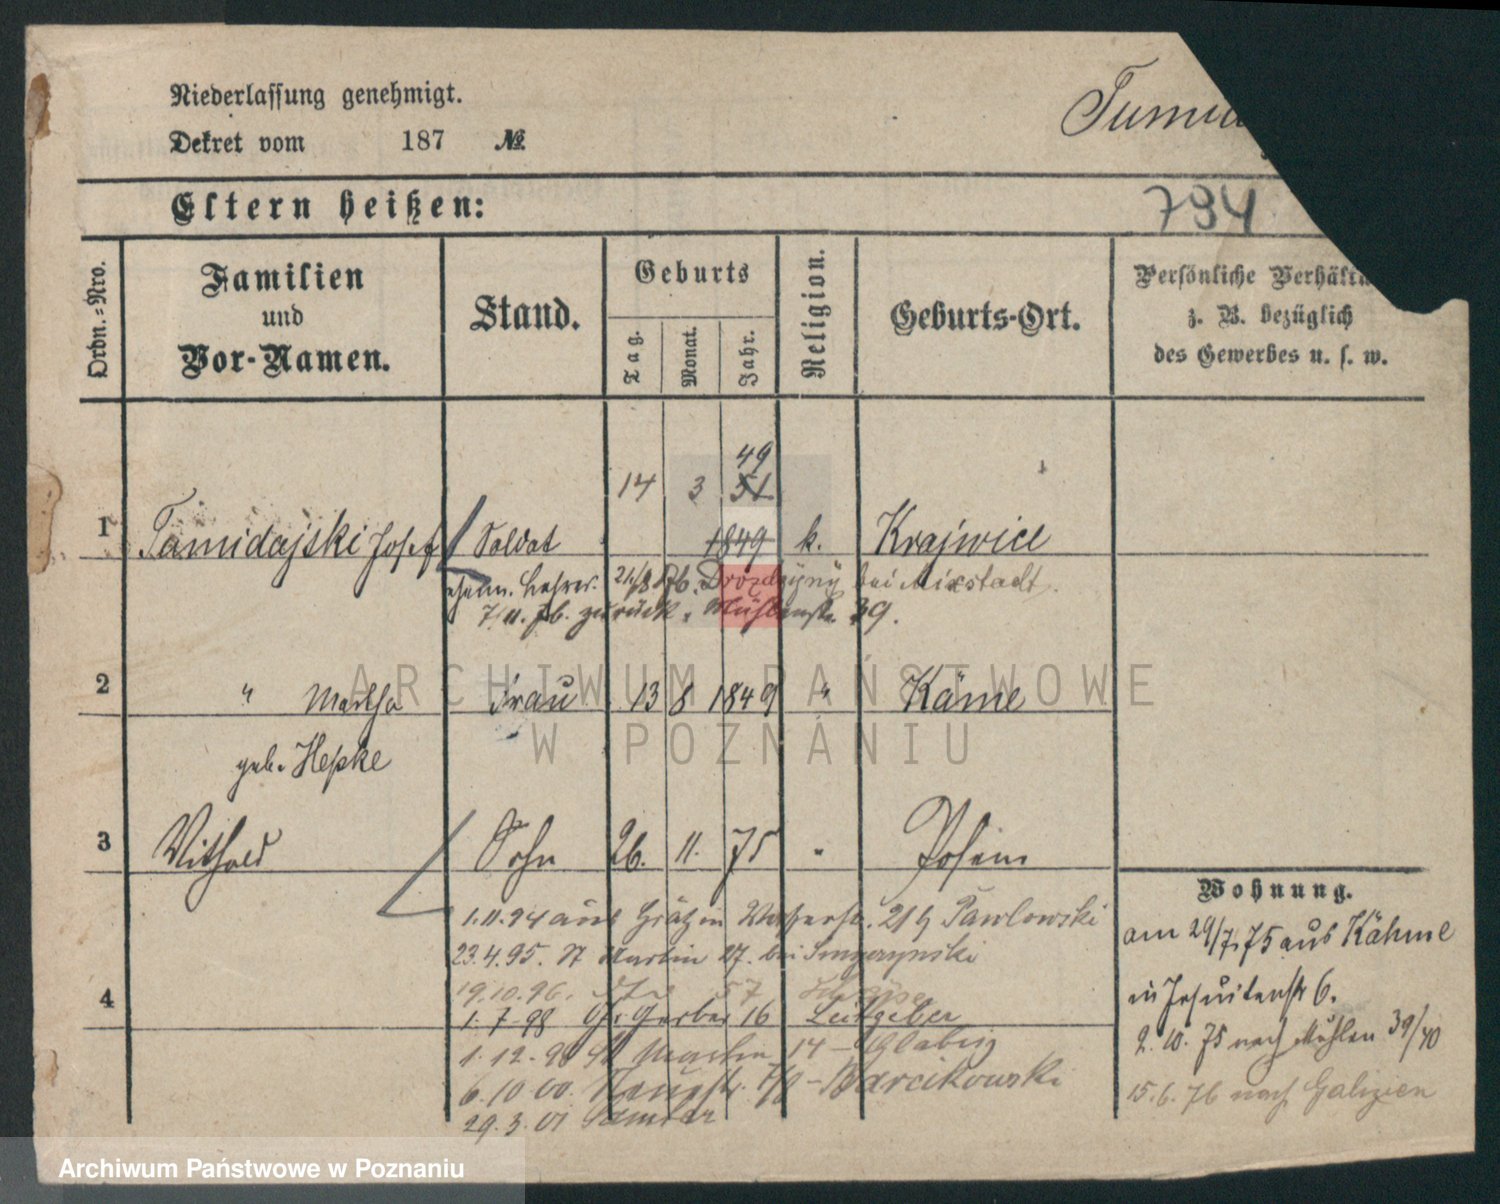 Niederlassung genehmigt.
Dekret vom 187 №
794
Eltern heißen:
Ordn.-Nro.
Familien
und
Vor-Namen.
Stand.
Geburts
Tag.
Monat.
Jahr.
Religion.
Geburts-Ort.
Persönliche
z. B. bezüglich
des Gewerbes u. s. w.
49
14 3 51
1 Tumidajski Josef Soldat 1849 k. Krajwice
Lehrer. bei Mixstadt.
zurück. Mühlenstr. 39.
2 " Martha Frau 13 8 1849 " Käme
geb. Hepke
3 Withold Sohn 26. 11. 75 " Posen
Wohnung.
1.11.94 aus Grätz in Wasserstr. Pawlowski
am 29/7.75 aus Kähme
23.4.95. St Martin 27. bei
in Jesuitenstr 6.
4
19.10.96. 57
1.7.98 Gr. Gerber 16 Leitgeber
2.10.75 nach Mühlen 39/40
1.12.98 St Martin 14 - Glabisz
6.10.00. Barcikowski
15.6.76 nach Galizien
29.3.01 Samter
ARCHIWUM PAŃSTWOWE
W POZNANIU
Archiwum Państwowe w Poznaniu